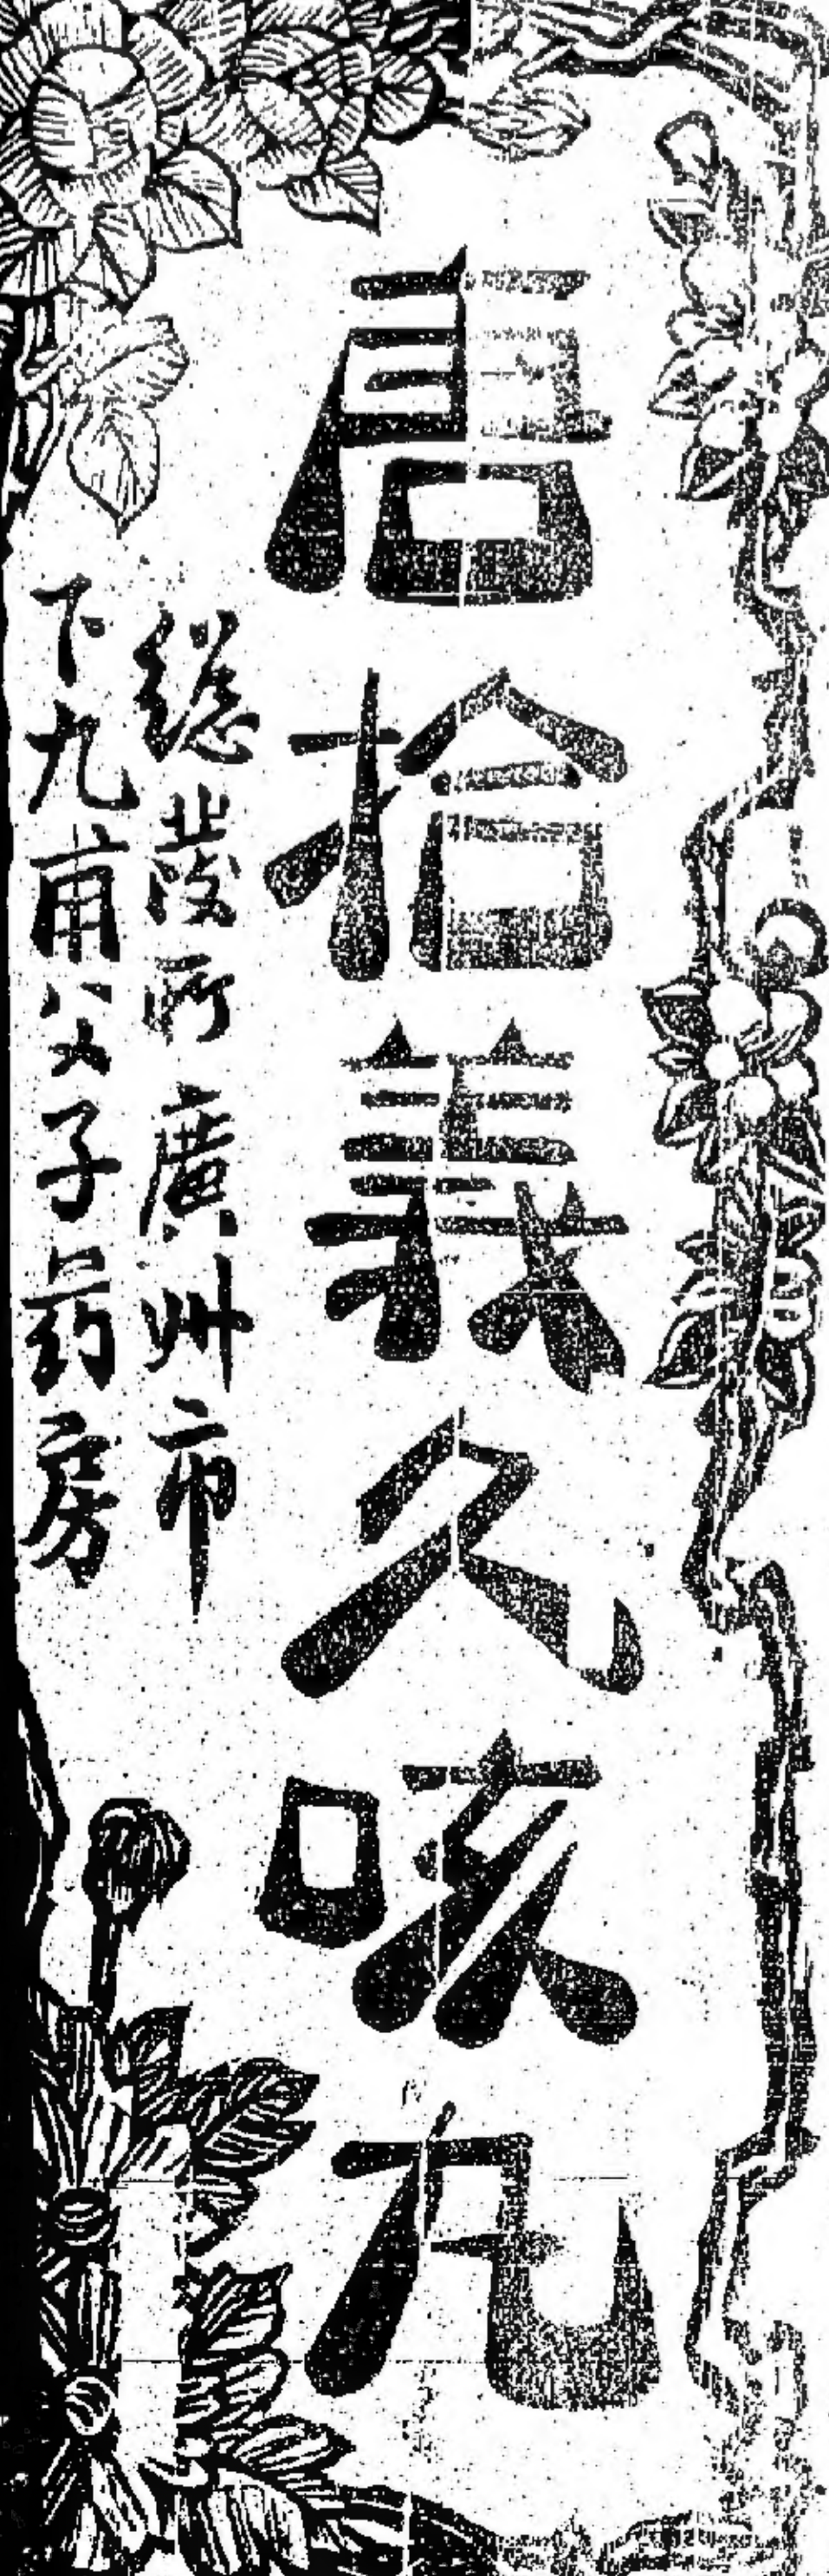 唐拾義久咳丸
總發所廣州市
下九甫父子药房